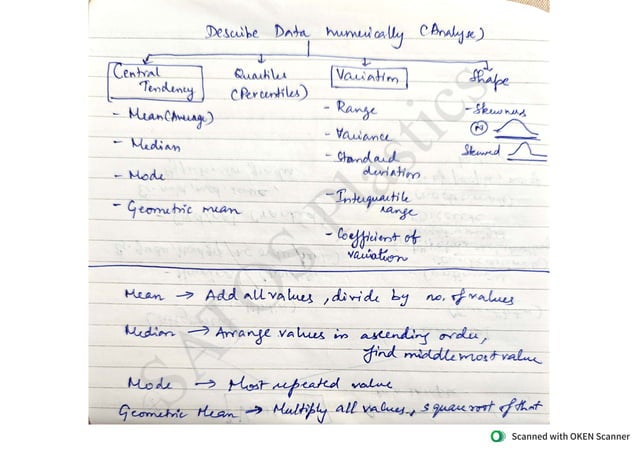 Describe Data numerically (Analyse)
Central Tendency
- Mean (Average)
- Median
- Mode
- Geometric mean
Quartiles
(Percentiles)
Variation
- Range
- Variance
- Standard deviation
- Interquartile range
- Coefficient of variation
Shape
- Skewness
N
Skewed
Mean → Add all values, divide by no. of values
Median → Arrange values in ascending order,
find middlemost value
Mode → Most repeated value
Geometric Mean → Multiply all values, square root of that
Scanned with OKEN Scanner